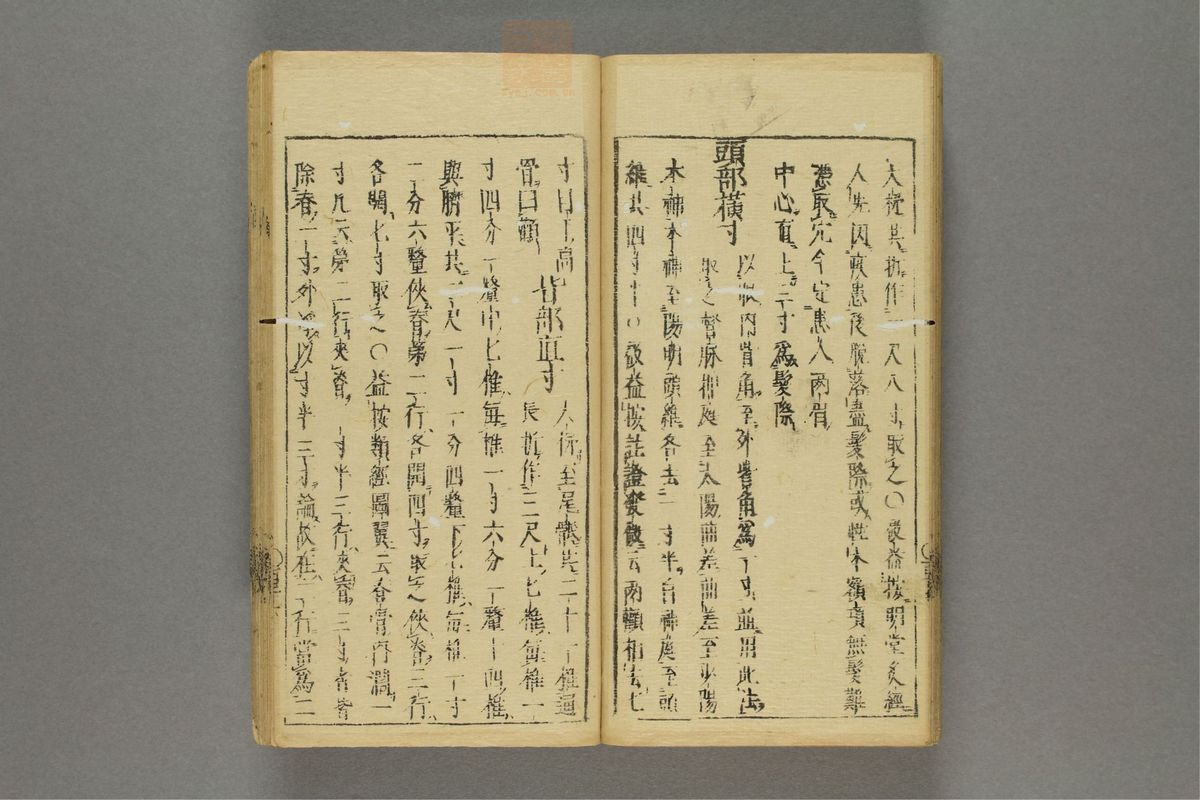 大椎共折作一尺八寸取之〇啟益按明堂灸經
人先因疾患後脫落盡髮際或性本額項無髮難
憑取穴今定患人兩眉
中心直上三寸為髮際
頭部橫寸
以眼內眥角至外眥角為一寸並用此法
取之督脉神庭至太陽曲差曲差至少陽
本神本神至陽明頭維各去一寸半自神庭至頭
維共四寸半〇啟益按註證發微云兩顴相去七
寸曰上高
骨曰顴
背部直寸
人脊至尾骶共二十一椎通
長折作三尺上七椎每椎一
寸四分一釐中七椎每椎一寸六分一釐十四椎
與臍平共二尺一寸一分四釐下七椎每椎一寸
二分六釐俠脊第二行各開四寸取之俠脊三行
各開七寸取之〇益按類經圖翼云脊骨內濶一
寸凡云第二行夾脊一寸半三行夾脊三寸者皆
除脊一寸外淨以寸半三寸論故在二行當為二